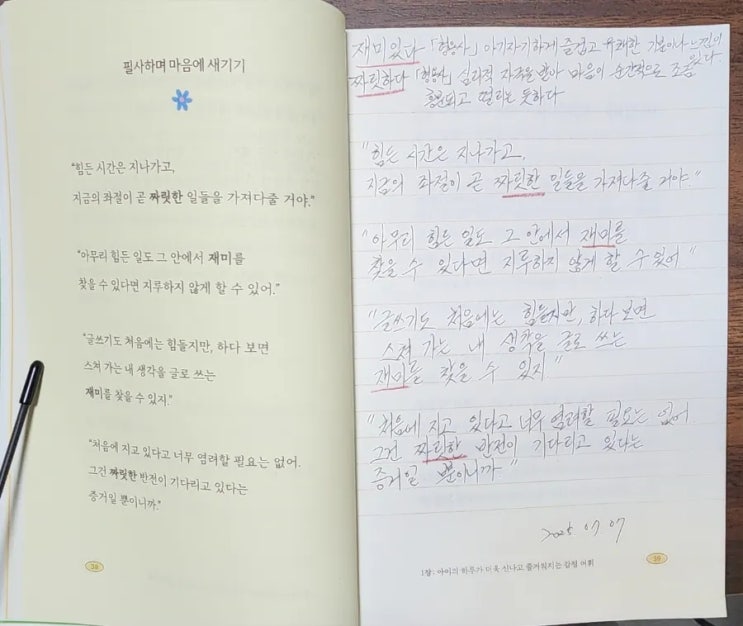 필사하며 마음에 새기기
"힘든 시간은 지나가고,
지금의 좌절이 곧 짜릿한 일들을 가져다줄 거야."
"아무리 힘든 일도 그 안에서 재미를
찾을 수 있다면 지루하지 않게 할 수 있어."
"글쓰기도 처음에는 힘들지만, 하다 보면
스쳐 가는 내 생각을 글로 쓰는
재미를 찾을 수 있지."
"처음에 지고 있다고 너무 염려할 필요는 없어.
그건 짜릿한 반전이 기다리고 있다는
증거일 뿐이니까."
38
재미있다 「형용사」 아기자기하게 즐겁고 유쾌한 기분이나 느낌이
있다
짜릿하다 「형용사」 심리적 자극을 받아 마음이 순간적으로 조금
흥분되고 떨리는 듯하다
"힘든 시간은 지나가고,
지금의 좌절이 곧 짜릿한 일들을 가져다줄 거야."
"아무리 힘든 일도 그 안에서 재미를
찾을 수 있다면 지루하지 않게 할 수 있어"
"글쓰기도 처음에는 힘들지만, 하다 보면
스쳐 가는 내 생각을 글로 쓰는
재미를 찾을 수 있지"
"처음에 지고 있다고 너무 염려할 필요는 없어
그건 짜릿한 반전이 기다리고 있다는
증거일 뿐이니까."
2025 07 07
1장: 아이의 하루가 더욱 신나고 즐거워지는 감정 어휘
39